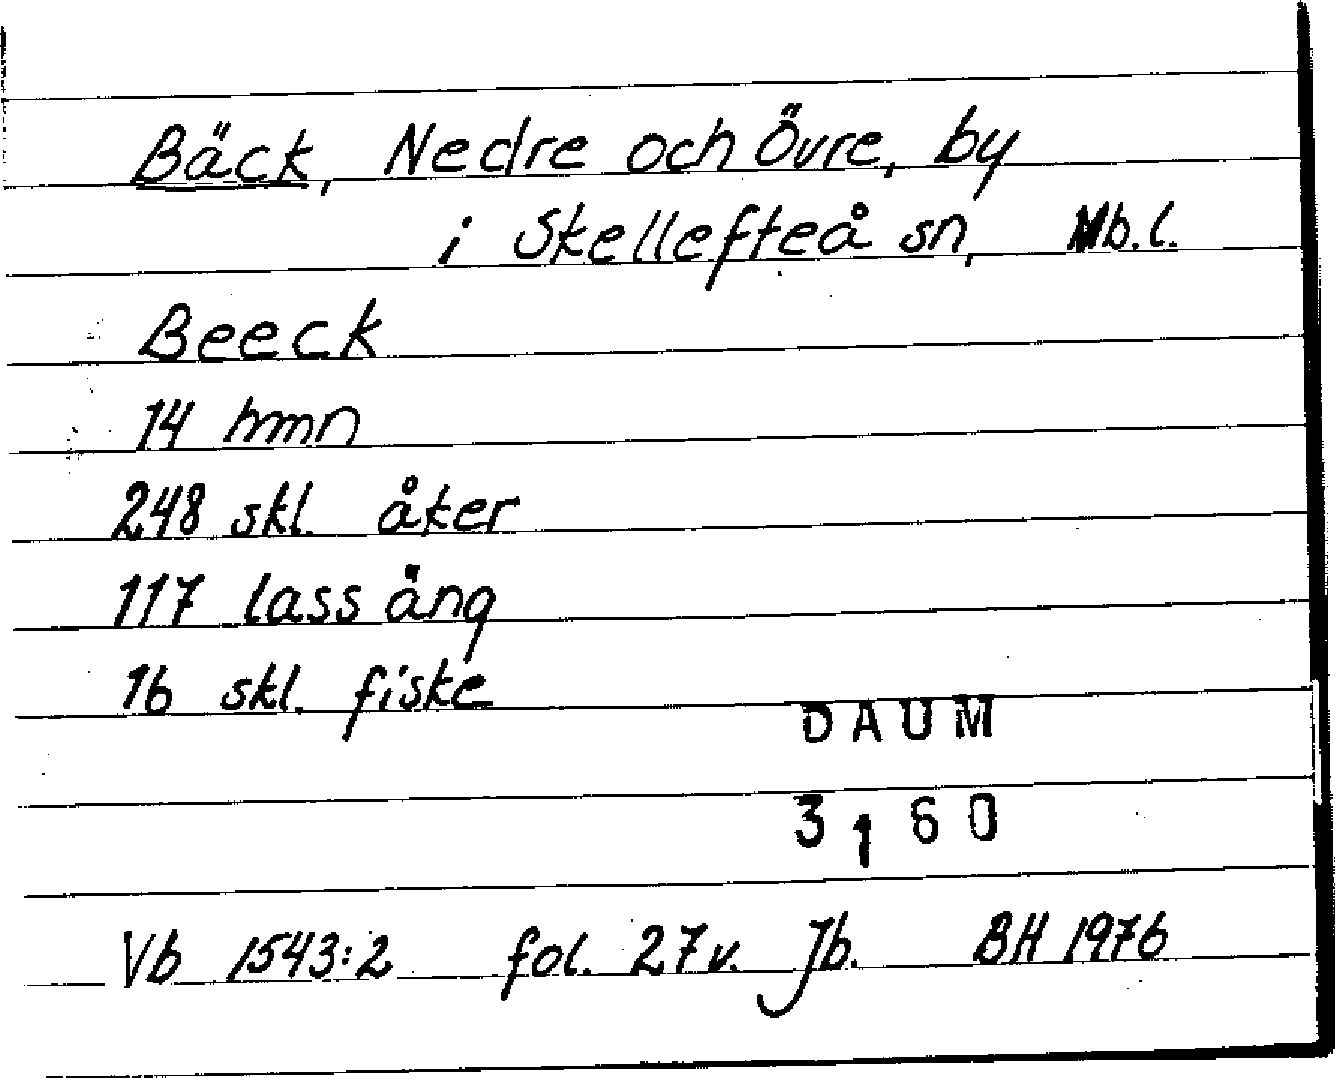 Bäck, Nedre och Övre, by
i Skellefteå sn, Nb.l.
Beeck
14 hmn
248 skl. åker
117 lass äng
16 skl. fiske
DAUM
3160
Vb 1543:2 fol. 27v. Jb. BH 1976